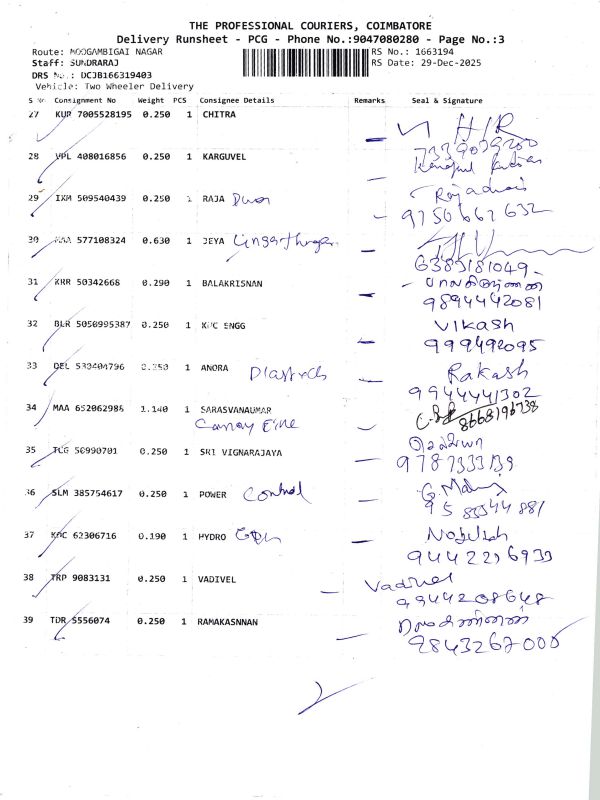 THE PROFESSIONAL COURIERS, COIMBATORE
Delivery Runsheet - PCG - Phone No.:9047080280 - Page No.:3
Route: MOOGAMBIGAI NAGAR RS No.: 1663194
Staff: SUNDRARAJ RS Date: 29-Dec-2025
DRS No.: DCJB166319403
Vehicle: Two Wheeler Delivery
S No Consignment No Weight PCS Consignee Details Remarks Seal & Signature
27 KUR 7005528195 0.250 1 CHITRA
7339039200
28 VPL 408016856 0.250 1 KARGUVEL
29 IXM 509540439 0.250 1 RAJA
9750667632
30 MAA 577108324 0.630 1 JEYA
6385181049
31 KRR 50342668 0.290 1 BALAKRISNAN
9894442081
32 BLR 5050995387 0.250 1 KPC ENGG Vikash
999492095
33 DEL 1 ANORA Rakash
9944441302
34 MAA 652062986 1.140 1 SARASVANAUMAR
8668196738
35 TLG 50990701 0.250 1 SRI VIGNARAJAYA
9787333139
36 SLM 385754617 0.250 1 POWER Control
37 KPC 62306716 0.190 1 HYDRO
9442296933
38 TRP 9083131 0.250 1 VADIVEL Vadivel
9944208648
39 TDR 5556074 0.250 1 RAMAKASNNAN
9843267000